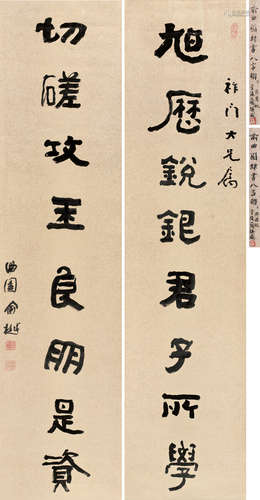 俞曲園隸書八言聯
俞曲園隸書八言聯
門大兄屬
旭歷銳君子所學
切磋攻玉良朋是資
曲園俞樾